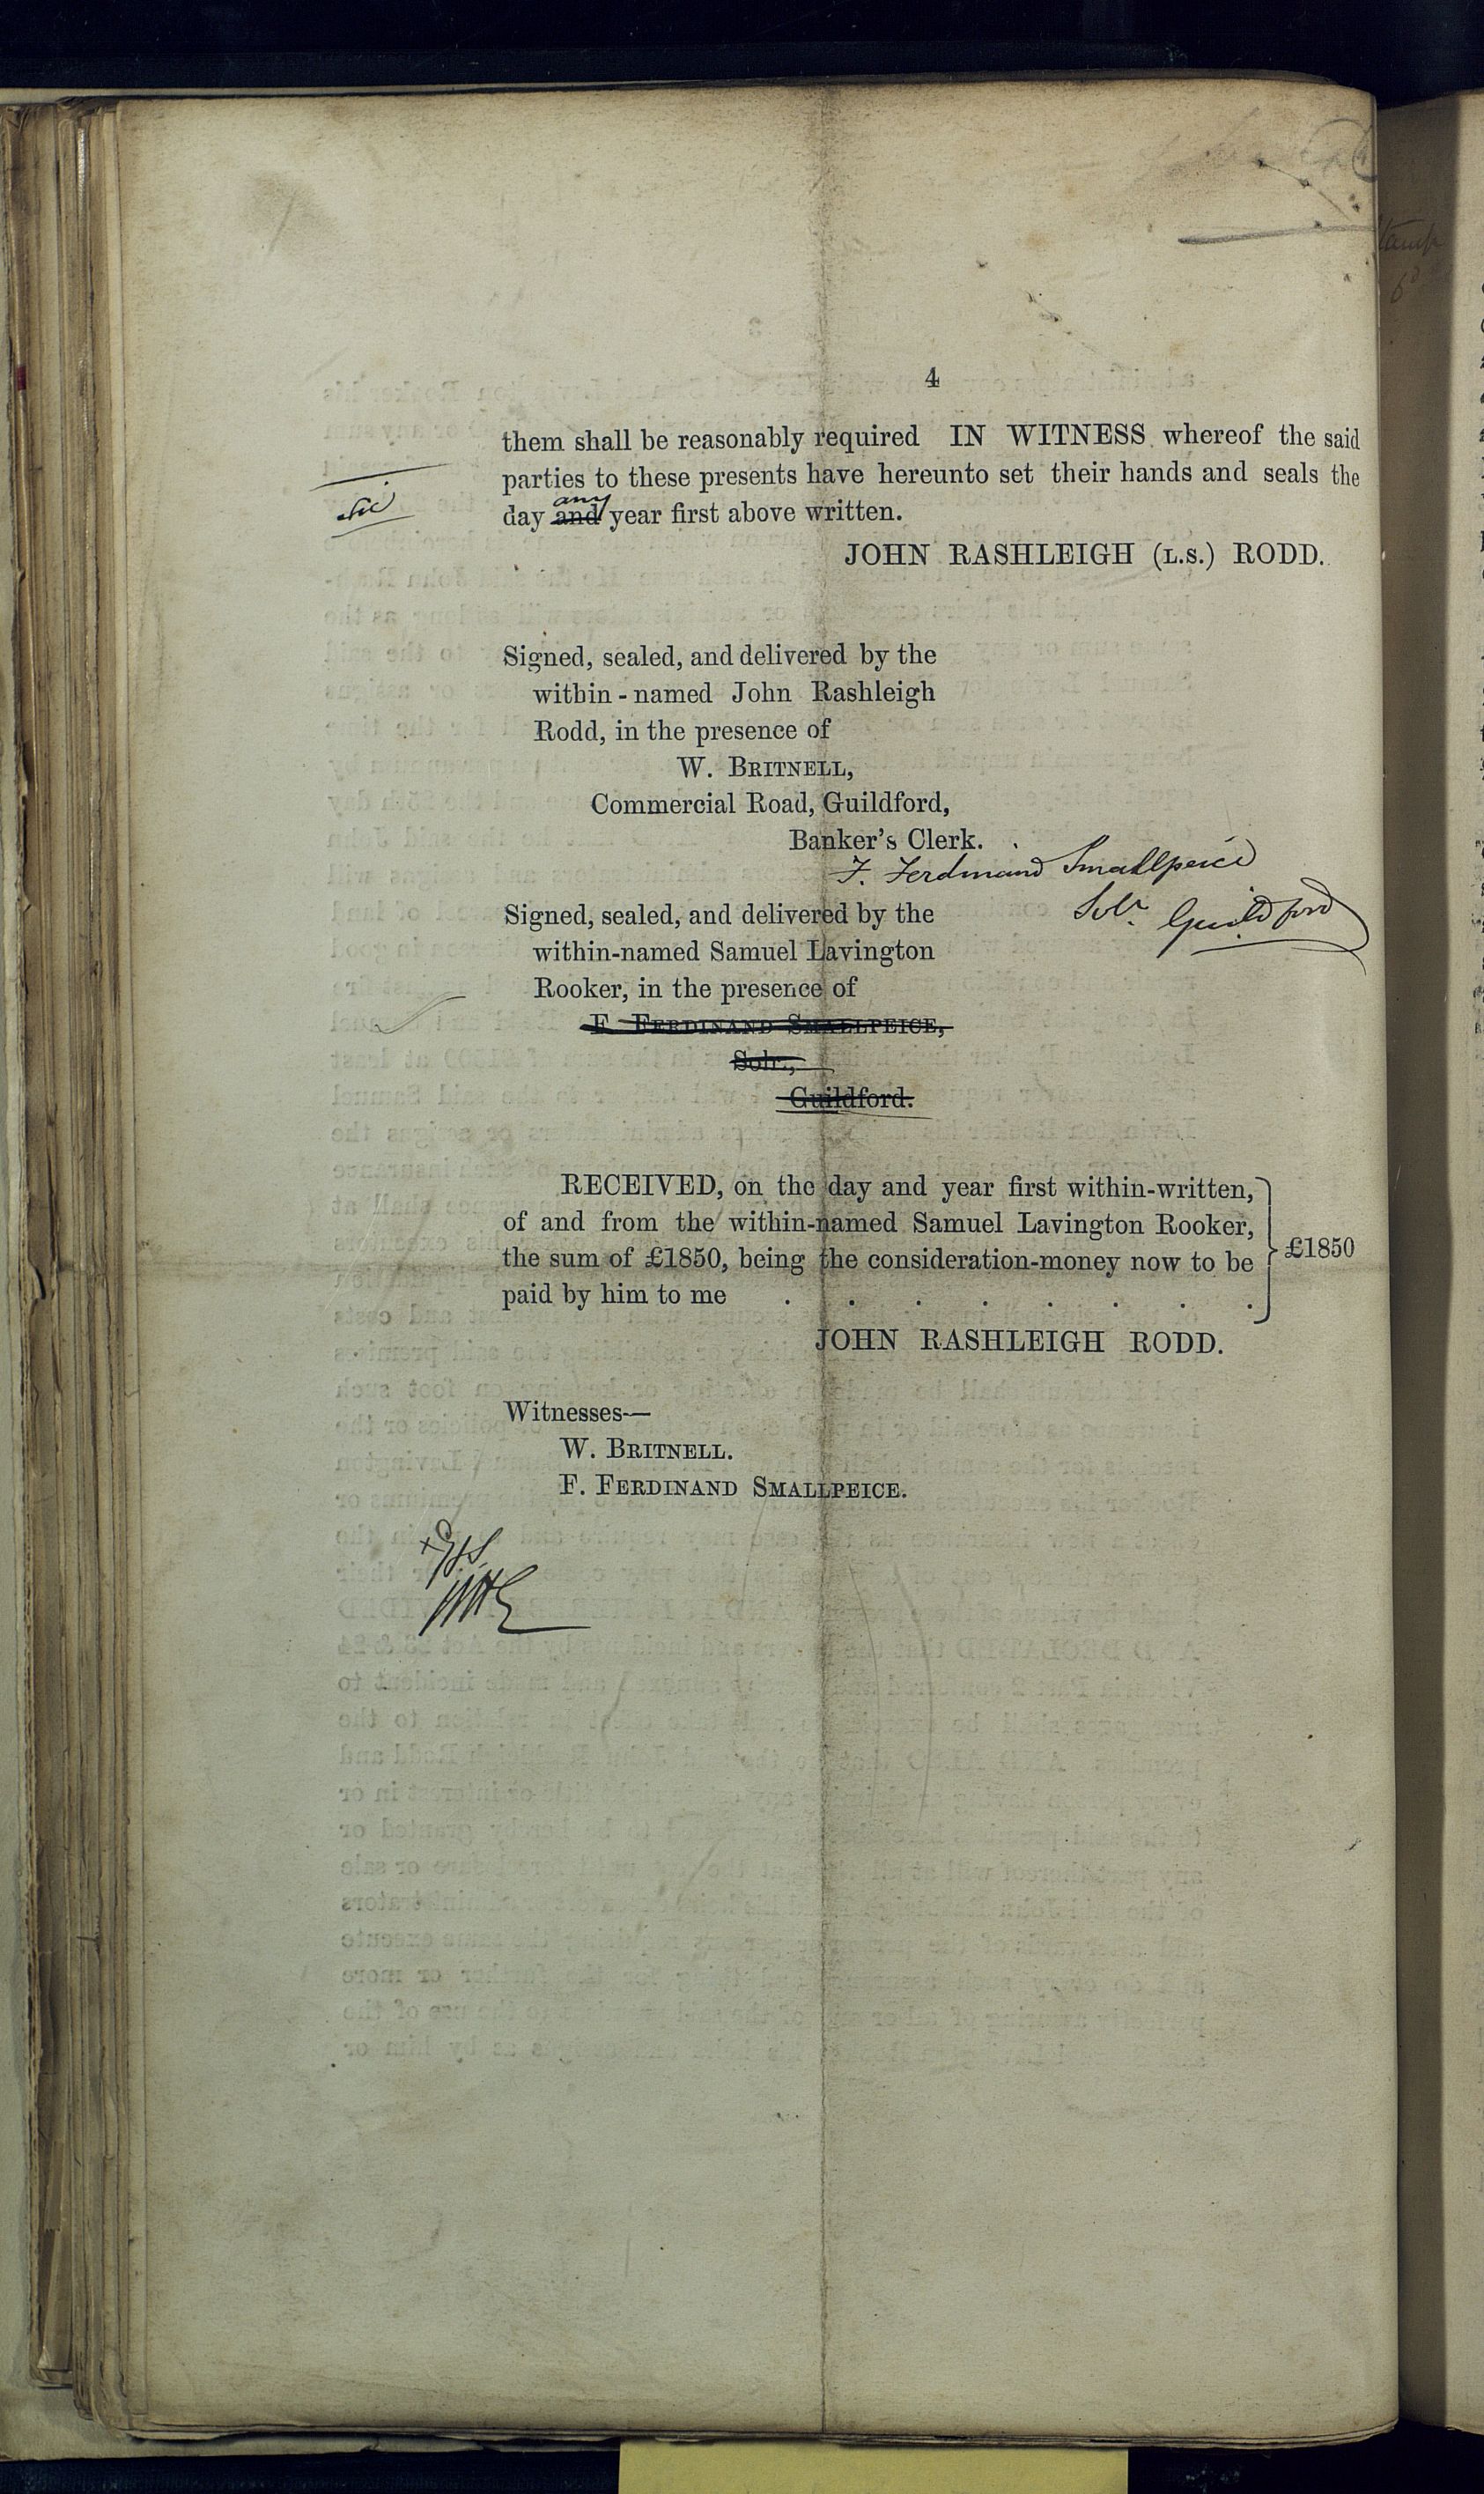 4
them shall be reasonably required IN WITNESS whereof the said
parties to these presents have hereunto set their hands and seals the
sic
any
day and year first above written.
JOHN RASHLEIGH (L.S.) RODD.
Signed, sealed, and delivered by the
within-named John Rashleigh
Rodd, in the presence of
W. BRITNELL,
Commercial Road, Guildford,
Banker's Clerk.
F. Ferdinand Smallpeice
Solr. Guildford
Signed, sealed, and delivered by the
within-named Samuel Lavington
Rooker, in the presence of
F FERDINAND SMALLPEICE,
Solr.,
Guildford.
RECEIVED, on the day and year first within-written,
of and from the within-named Samuel Lavington Rooker,
the sum of £1850, being the consideration-money now to be
paid by him to me . . . . . . . .
£1850
JOHN RASHLEIGH RODD.
Witnesses—
W. BRITNELL.
F. FERDINAND SMALLPEICE.